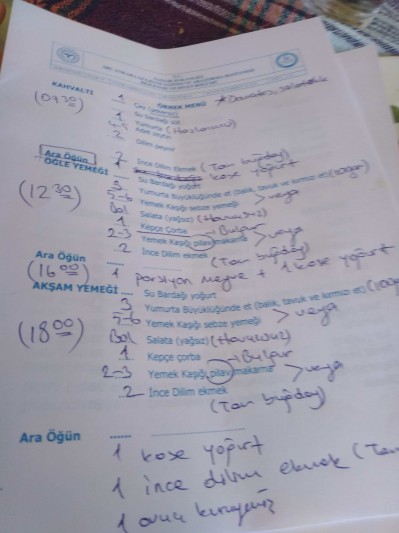 KAHVALTI
(07 30)
ÖRNEK MENÜ
1 Çay (şekersiz) * Domates, salatalık
1 Su Bardağı süt
4-5 Adet zeytin
Yumurta (Haşlanmış)
2 Dilim peynir
2 İnce Dilim Ekmek (Tam buğday)
Ara Öğün
1 kase yoğurt
ÖĞLE YEMEĞİ
(12 30)
Su Bardağı yoğurt
3 Yumurta Büyüklüğünde et (balık, tavuk ve kırmızı et) (100gr)
5-6 Yemek Kaşığı sebze yemeği > veya
Bol Salata (yağsız) (Havuçsuz)
1 Kepçe Çorba → Bulgur
2-3 Yemek Kaşığı pilav makarna > veya
2 İnce Dilim ekmek (Tam buğday)
Ara Öğün
(16 00) 1 porsiyon meyve + 1 kase yoğurt
AKŞAM YEMEĞİ
(18 00)
...... Su Bardağı yoğurt
3 Yumurta Büyüklüğünde et (balık, tavuk ve kırmızı et) (100gr)
5-6 Yemek Kaşığı sebze yemeği > veya
Bol Salata (yağsız) (Havuçsuz)
1 Kepçe çorba → Bulgur
2-3 Yemek Kaşığı pilav makarna > veya
2 İnce Dilim ekmek
(Tam buğday)
Ara Öğün ......
1 kase yoğurt
1 ince dilim ekmek (Tam
1 avuç kuruyemiş